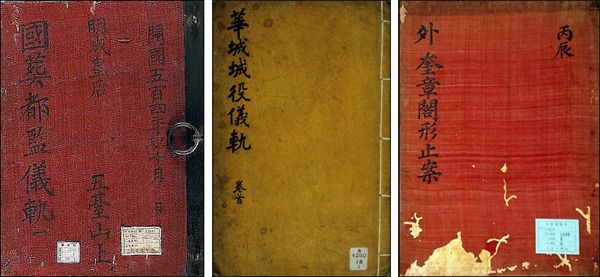 開國五百四年十月 日
明成皇后
五臺山上
國葬都監儀軌一
華城城役儀軌
卷首
4250
18
1
丙辰
外奎章閣形止案